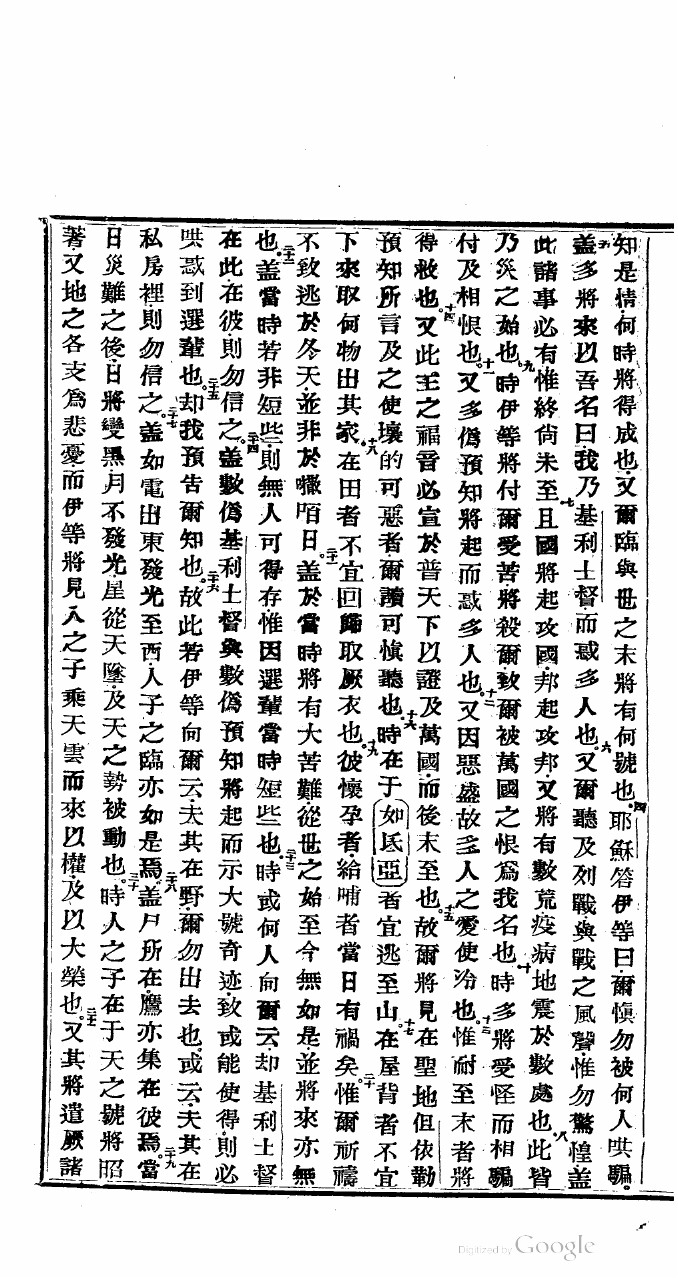 知是情何時將得成也又爾臨與世之末將有何號也四耶穌答伊等曰爾慎勿被何人哄騙
五盖多將來以吾名曰我乃基利士督而惑多人也六又爾聽及列戰與戰之風聲惟勿驚惶盖
此諸事必有惟終尙未至七且國將起攻國邦起攻邦又將有數荒疫病地震於數處也八此皆
乃災之始也九時伊等將付爾受苦將殺爾致爾被萬國之恨爲我名也十時多將受怪而相騙
付及相恨也十一又多僞預知將起而惑多人也十二又因惡盛故多人之愛使冷也十三惟耐至末者將
得救也十四又此王之福音必宣於普天下以證及萬國而後末至也十五故爾將見在聖地但依勒
預知所言及之使壞的可惡者爾讀可慎聽也十六時在于如氐亞者宜逃至山十七在屋背者不宜
下來取何物出其家十八在田者不宜回歸取厥衣也十九彼懷孕者給哺者當日有禍矣二十惟爾祈禱
不致逃於冬天並非於㘔咟日二十一盖於當時將有大苦難從世之始至今無如是並將來亦無
也二十二盖當時若非短些則無人可得存惟因選輩當時短些也二十三時或何人向爾云却基利士督
在此在彼則勿信之二十四盖數僞基利士督與數僞預知將起而示大號奇迹致或能使得則必
哄惑到選輩也二十五却我預告爾知也二十六故此若伊等向爾云夫其在野爾勿出去也或云夫其在
私房裡則勿信之二十七盖如電出東發光至西人子之臨亦如是焉二十八盖尸所在鷹亦集在彼焉二十九當
日災難之後日將變黑月不發光星從天墜及天之勢被動也三十時人之子在于天之號將昭
著又地之各支爲悲憂而伊等將見人之子乘天雲而來以權及以大榮也三十一又其將遣厥諸
Digitized by Google